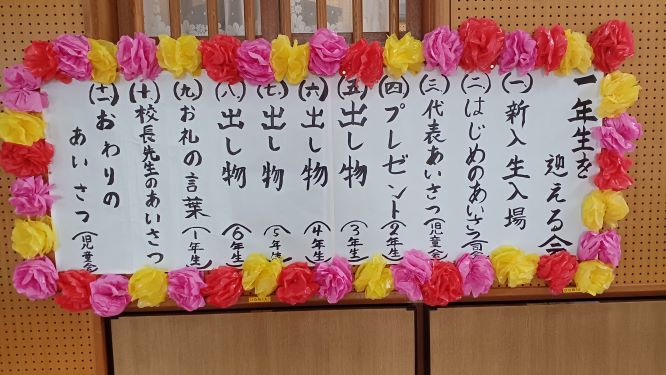 一年生を
迎える会
(一) 新入生入場
(二) はじめのあいさつ
(三) 代表あいさつ (児童会)
(四) プレゼント (2年生)
(五) 出し物 (3年生)
(六) 出し物 (4年生)
(七) 出し物 (5年生)
(八) 出し物 (6年生)
(九) お礼の言葉 (1年生)
(十) 校長先生のあいさつ
(十一) おわりの
あいさつ (児童会)